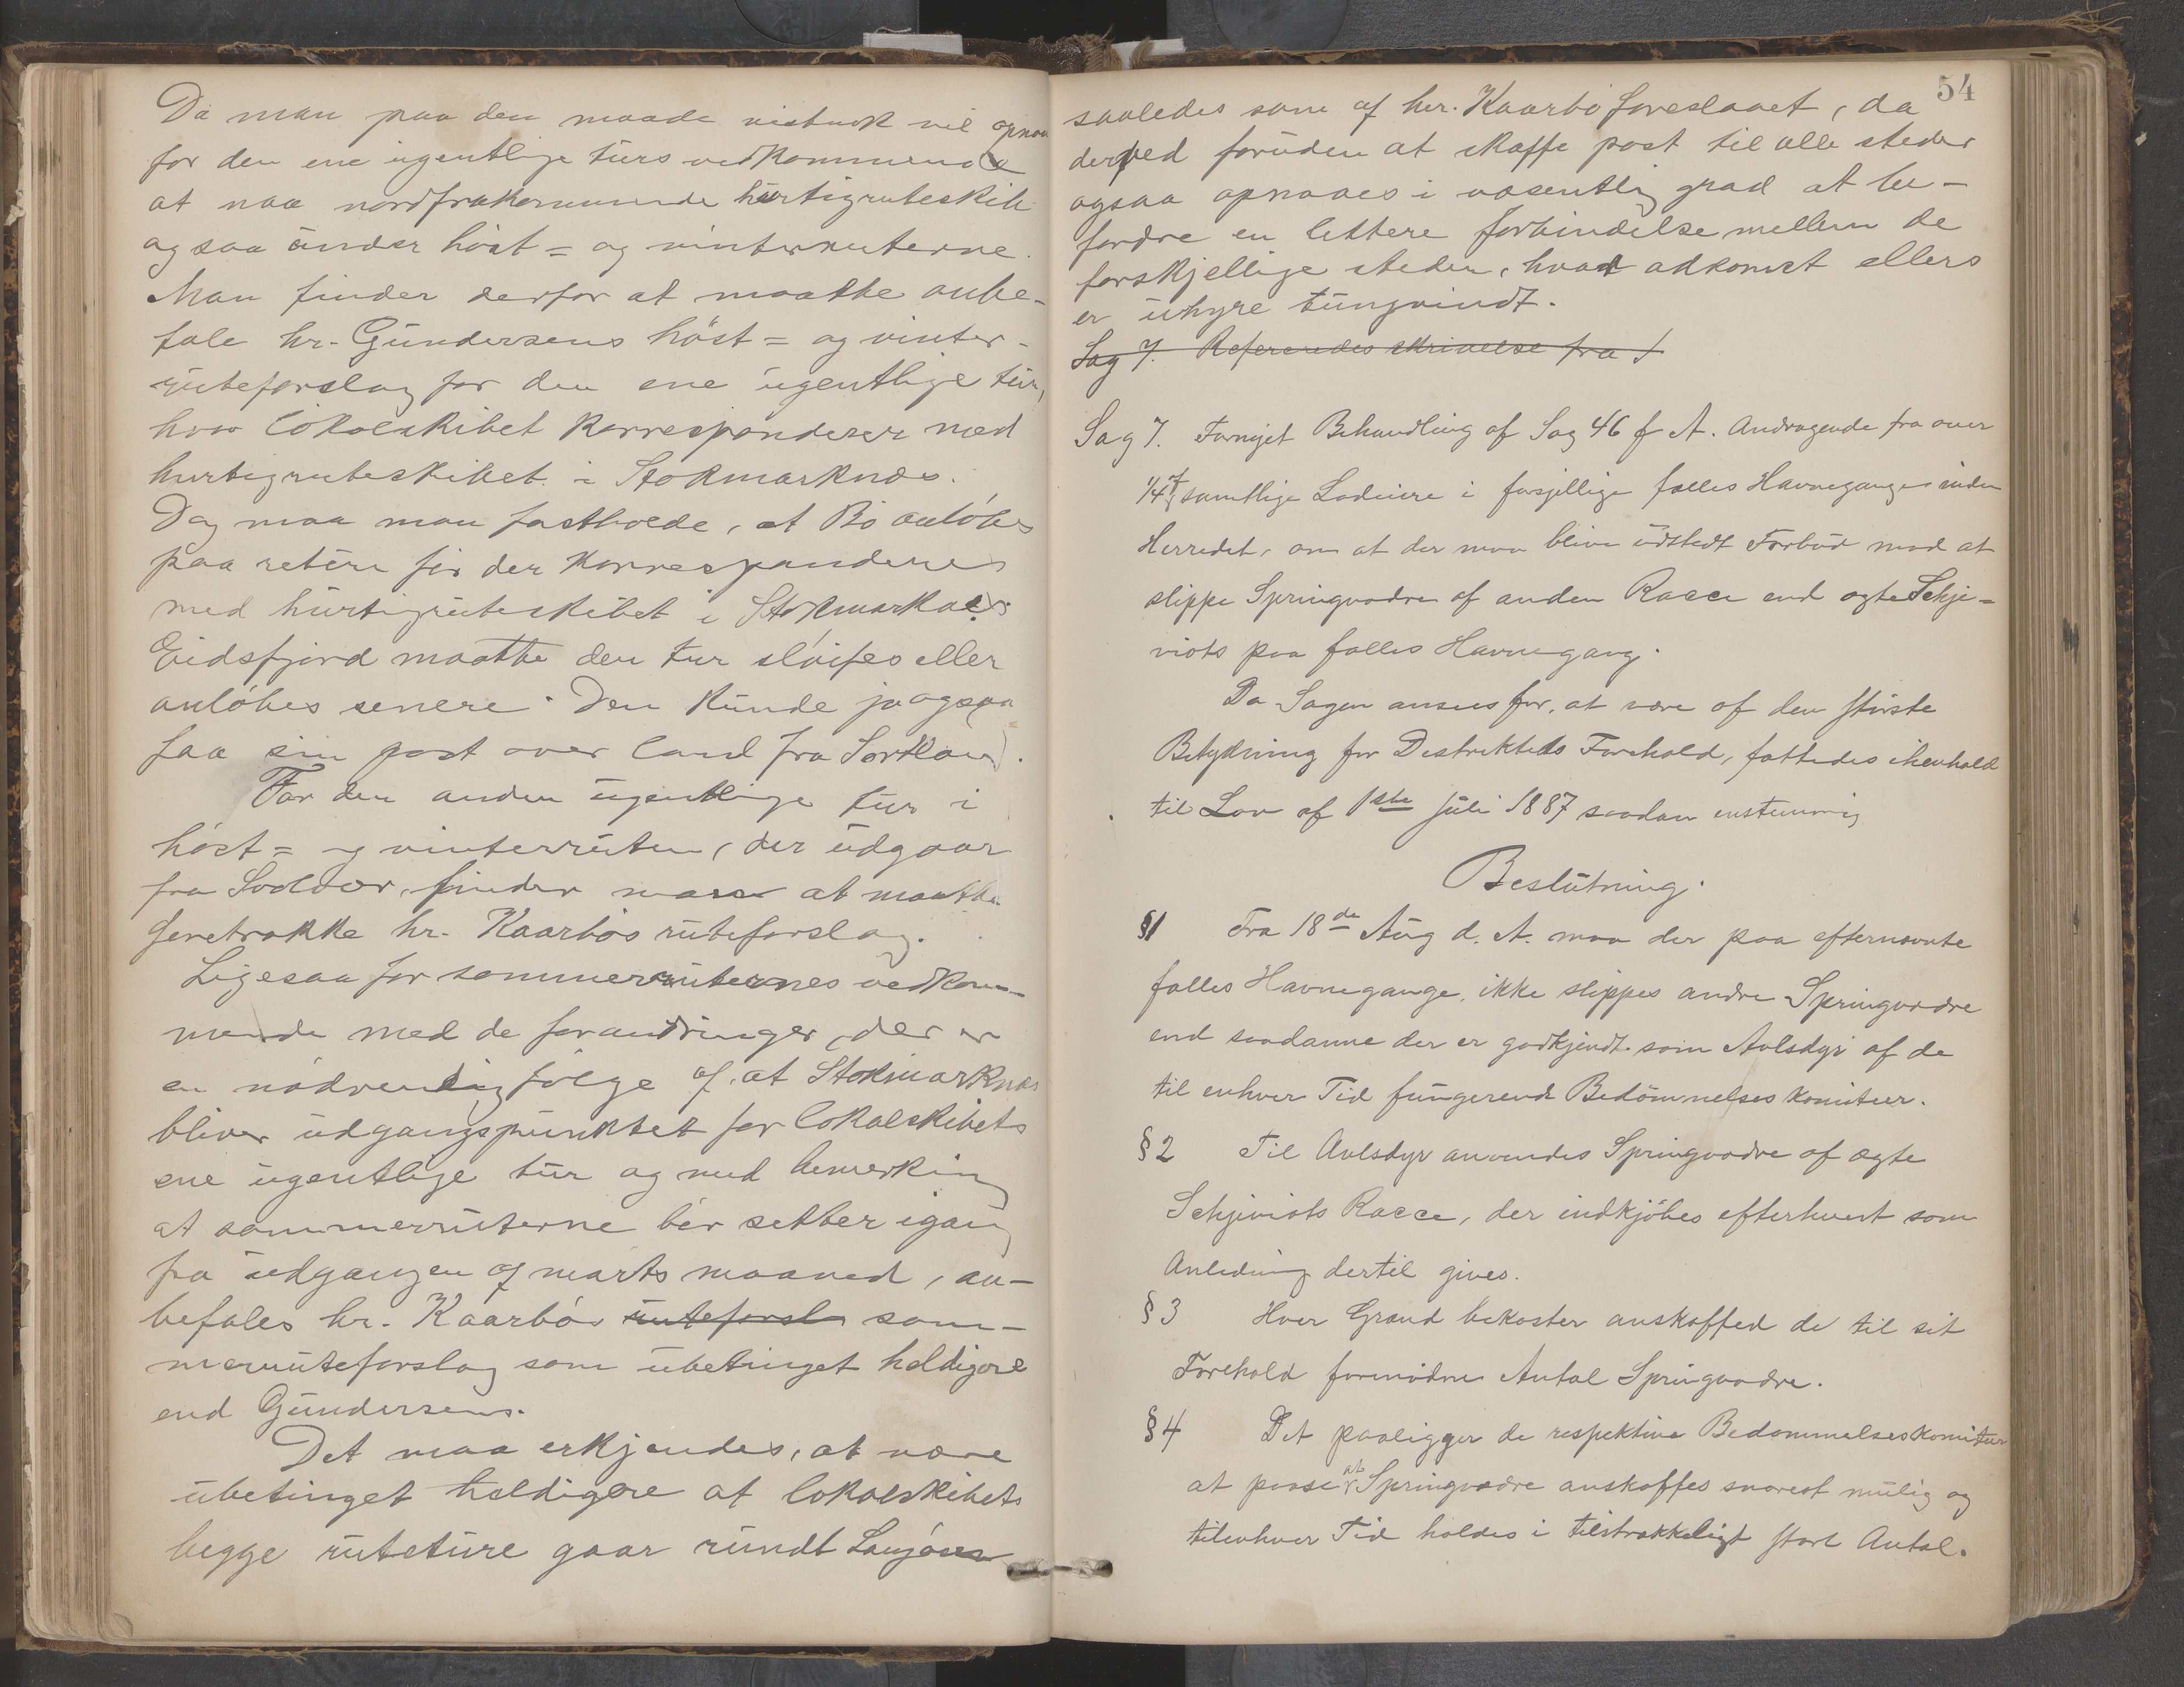 Da man paa den maade vistnok vil opnaa
for den ene ugentlige turs vedkommende
at naa nordfrakommende hurtigruteskib
ogsaa under høst= og vinterruterne.
Man finder derfor at maatte anbe-
fale hr. Gundersens høst= og vinter-
ruteforslag for den ene ugentlige tur,
hvor lokalskibet korresponderer med
hurtigruteskibet i Stokmarknæs.
Dog maa man fastholde, at Bø anløbes
paa retur før der korresponderes
med hurtigruteskibet i Stokmarknæs.
Eidsfjord maatte den tur sløifes eller
anløbes senere. Den kunde jo ogsaa
faa sin post over land fra Sortland.
For den anden ugentlige tur i
høst= og vinterruten, der udgaar
fra Svolvær, finder man at maatte
foretrække hr. Kaarbøs ruteforslag.
Ligesaa for sommerruternes vedkom-
mende med de forandringer, der er
en nødvendig følge af, at Stokmarknæs
bliver udgangspunktet for lokalskibets
ene ugentlige tur og med bemerkning
at sommerruterne bør settes igang
fra udgangen af marts maaned, an-
befales hr. Kaarbøs ruteforsl som-
merruteforslag som ubetinget heldigere
end Gundersens.
Det maa erkjendes, at være
ubetinget heldigere at lokalskibets
begge ruteture gaar rundt Langøen
54
saaledes som af hr. Kaarbø foreslaaet, da
derved foruden at skaffe post til alle steder
ogsaa opnaaes i væsentlig grad at be-
fordre en lettere forbindelse mellem de
forskjellige steder, hvad adkomst ellers
er uhyre tungvindt.
Sag 7. Refereredes skrivelse fra
Sag 7. Fornyet Behandling af Sag 46 f A. Andragende fra over
1/4 af samtlige Lodeiere i forsjellige fælles Havnegange inden
Herredet, om at der maa blive udstedt Forbud mod at
slippe Springvædre af anden Racce end ægte Schje-
viots paa fælles Havnegang.
Da Sagen ansees for, at være af den største
Betydning for Distriktets Farehold, fattedes ihenhold
til Lov af 1ste Juli 1887 saadan enstemmig
Beslutning.
§1 Fra 18de Aug d. A. maa der paa efternævnte
fælles Havnegange, ikke slippes andre Springvædre
end saadanne der er godkjendt som Avlsdyr af de
til enhver Tid fungerende Bedømmelseskomiteer.
§2 Til Avlsdyr anvendes Springvædre af ægte
Schjeviots Racce, der indkjøbes efterhvert som
Anledning dertil gives.
§3 Hver Grand bekoster anskaffed de til sit
Farehold fornødne Antal Springvædre.
§4 Det paaligger de respektive Bedømmelseskomiteer
at paase at Springvædre anskaffes snarest mulig og
tilenhver Tid holdes i tilstrækkeligt stort Antal.